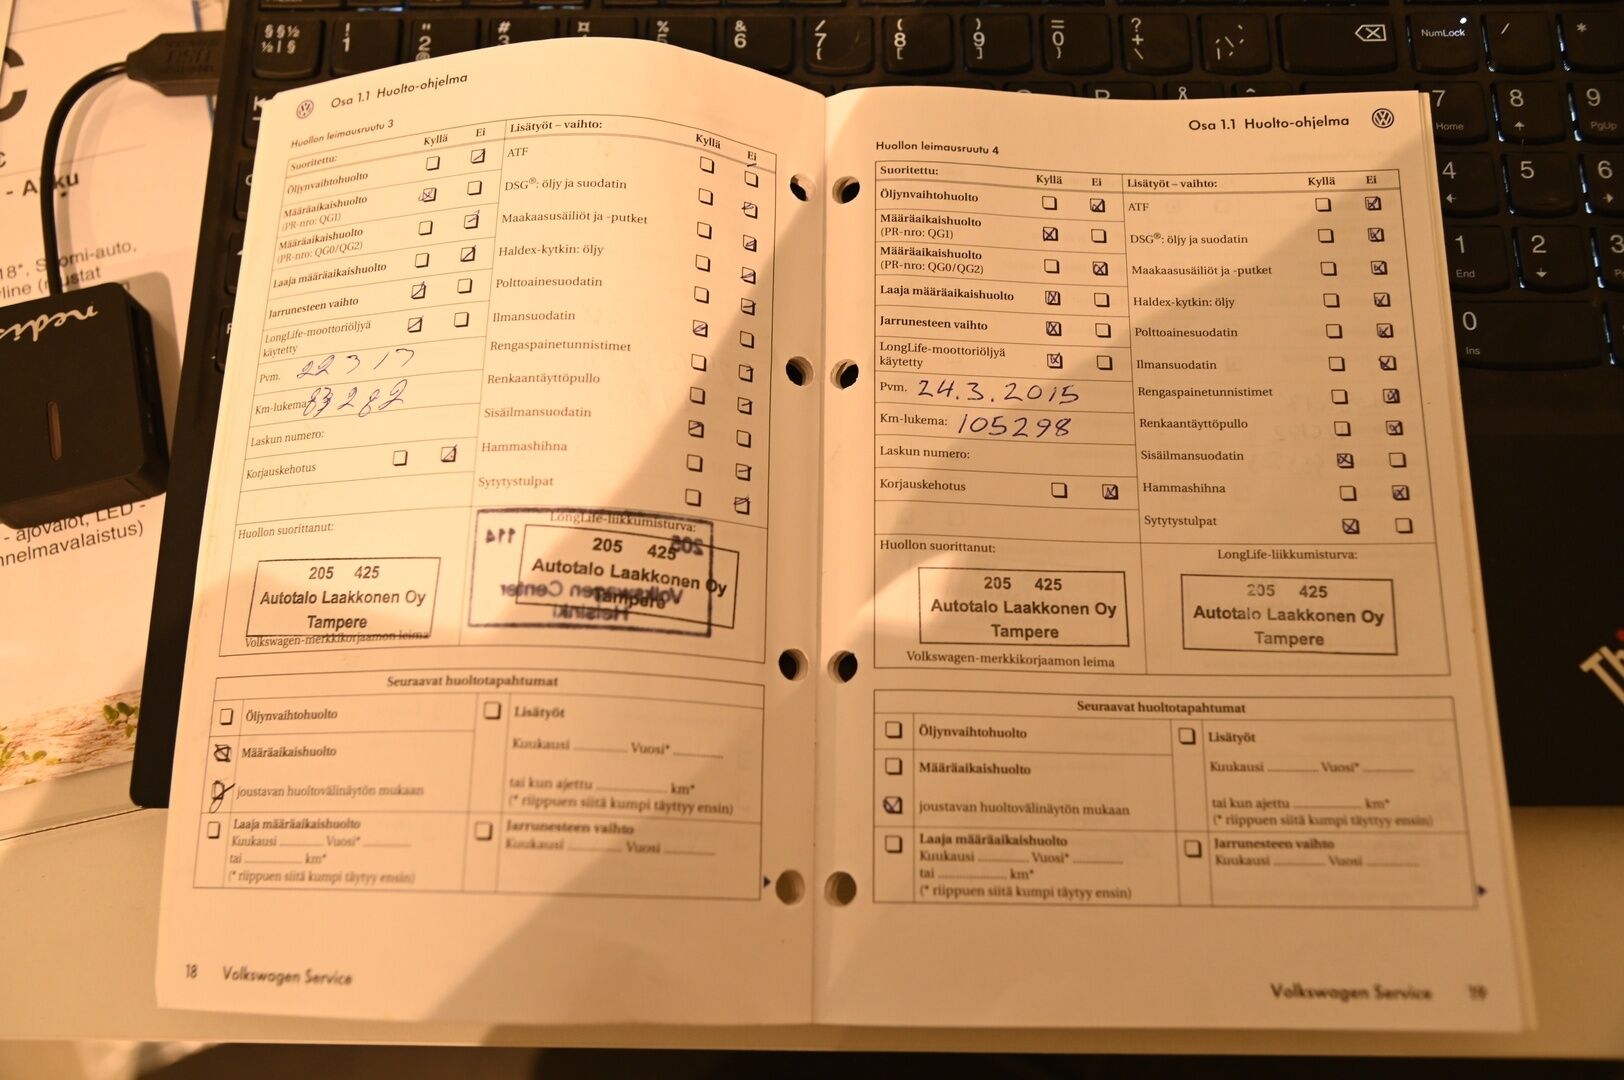 Osa 1.1 Huolto-ohjelma
Huollon leimausruutu 3
Suoritettu:
Kyllä Ei
Öljynvaihtohuolto
Määräaikaishuolto
(PR-nro: QG1)
Määräaikaishuolto
(PR-nro: QG0/QG2)
Laaja määräaikaishuolto
Jarrunesteen vaihto
LongLife-moottoriöljyä
käytetty
Pvm. 22 3 13
Km-lukema: 83282
Laskun numero:
Korjauskehotus
Lisätyöt – vaihto:
Kyllä Ei
ATF
DSG®: öljy ja suodatin
Maakaasusäiliöt ja -putket
Haldex-kytkin: öljy
Polttoainesuodatin
Ilmansuodatin
Rengaspainetunnistimet
Renkaantäyttöpullo
Sisäilmansuodatin
Hammashihna
Sytytystulpat
Huollon suorittanut:
205 425
Autotalo Laakkonen Oy
Tampere
Volkswagen-merkkikorjaamon leima
LongLife-liikkumisturva:
205 425
Autotalo Laakkonen Oy
Tampere
205 114
Volkswagen Center
Helsinki
Seuraavat huoltotapahtumat
Öljynvaihtohuolto
Määräaikaishuolto
joustavan huoltovälinäytön mukaan
Laaja määräaikaishuolto
Kuukausi Vuosi*
tai km*
(* riippuen siitä kumpi täytyy ensin)
Lisätyöt
Kuukausi Vuosi*
tai kun ajettu km*
(* riippuen siitä kumpi täyttyy ensin)
Jarrunesteen vaihto
Kuukausi Vuosi
18 Volkswagen Service
Osa 1.1 Huolto-ohjelma
Huollon leimausruutu 4
Suoritettu:
Kyllä Ei
Öljynvaihtohuolto
Määräaikaishuolto
(PR-nro: QG1)
Määräaikaishuolto
(PR-nro: QG0/QG2)
Laaja määräaikaishuolto
Jarrunesteen vaihto
LongLife-moottoriöljyä
käytetty
Pvm. 24.3.2015
Km-lukema: 105298
Laskun numero:
Korjauskehotus
Lisätyöt – vaihto:
Kyllä Ei
ATF
DSG®: öljy ja suodatin
Maakaasusäiliöt ja -putket
Haldex-kytkin: öljy
Polttoainesuodatin
Ilmansuodatin
Rengaspainetunnistimet
Renkaantäyttöpullo
Sisäilmansuodatin
Hammashihna
Sytytystulpat
Huollon suorittanut:
205 425
Autotalo Laakkonen Oy
Tampere
Volkswagen-merkkikorjaamon leima
LongLife-liikkumisturva:
205 425
Autotalo Laakkonen Oy
Tampere
Seuraavat huoltotapahtumat
Öljynvaihtohuolto
Määräaikaishuolto
joustavan huoltovälinäytön mukaan
Laaja määräaikaishuolto
Kuukausi Vuosi*
tai km*
(* riippuen siitä kumpi täytyy ensin)
Lisätyöt
Kuukausi Vuosi*
tai kun ajettu km*
(* riippuen siitä kumpi täyttyy ensin)
Jarrunesteen vaihto
Kuukausi Vuosi
Volkswagen Service
nedis
- ajovalot, LED -
NumLock
7 Home
8
9 PgUp
4
5
6
1 End
2
3
0 Ins